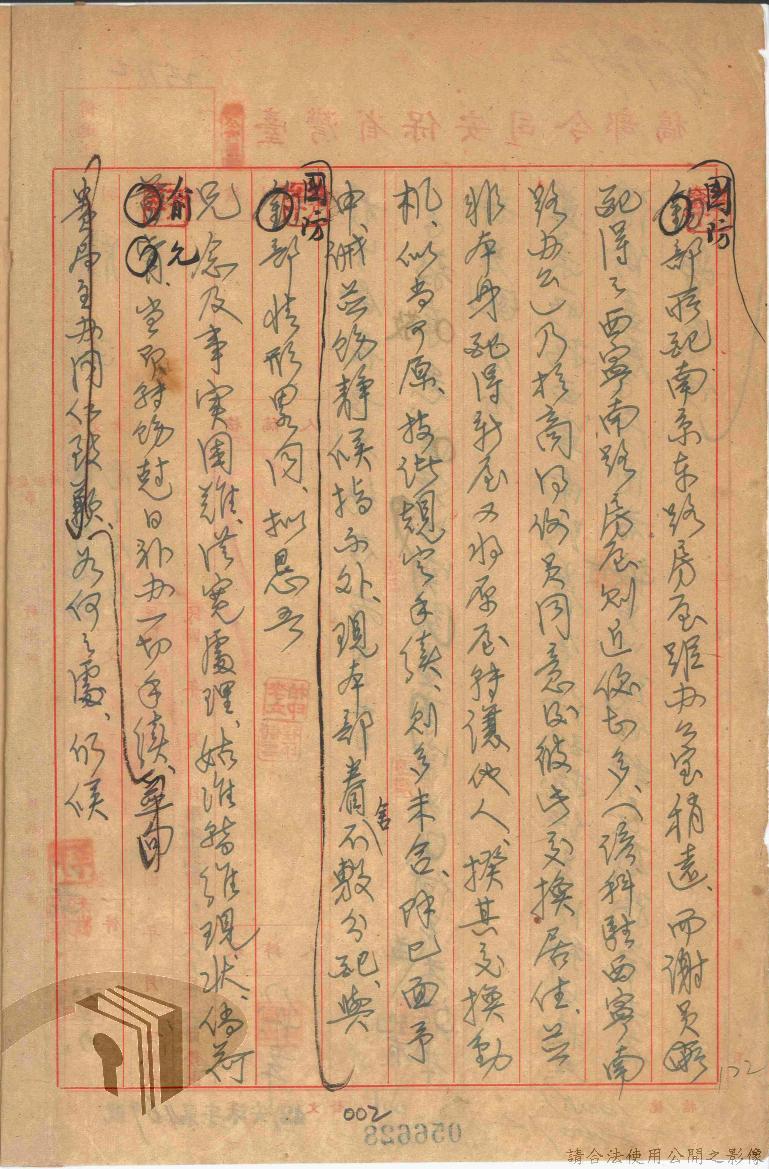 國防
部所配南京東路房屋距办公室稍遠、而謝員
配得之西寧南路房屋則近便甚多、(該科駐西寧南
路办公)乃於商得何員同意後彼此交換居住、並
非本身配得新屋又將原屋轉讓他人、揆其交換動
机、似尚可原、按諸規定手續、則多未合、除已面予
申誡並飭靜候指示外、現本部眷舍不敷分配、與
國防
部情形畧同、擬懇吾
兄念及事實困難、從寬處理、姑准暫維現狀、倘荷
俞允
當即轉飭尅日补办一切手續、並向
貴局主办同仁致歉、如何之處、仍候
102
002
056628
臺灣省保安司令部稿
請合法使用公開之影像